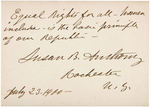 Equal Rights for all - women
included - is the basic principle
of our Republic -
Susan B. Anthony
Rochester
July 23. 1900 N. Y.